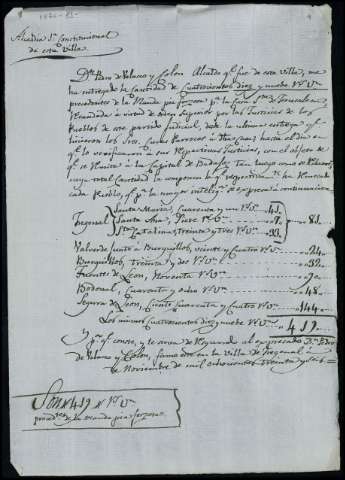 Alcaldia 1ª Constitucional
de esta Villa
Dⁿ Pedro de Velasco y Colon Alcalde qᵉ fue de esta Villa, me
ha entregado la cantidad de Cuatrocientos diez y nueve rˢ vⁿ
procedentes de la Manda pia forzosa pᵃ la Casa Sᵗᵃ de Jerusalen
Recaudada á virtud de orden Superior por las Justicias de los
Pueblos de este partido Judicial, desde la ultima entrega qᵉ
hicieron los Sres Curas Parrocos hasta el dia en
qᵉ lo verificaron sus respectivas Justicias, con el objeto de
qᵉ se remita á la Capital de Badajoz
cuya total Cantidad la componen las respectivas
cada Pueblo, qᵉ pᵃ la mayor inteligᵃ se expresa á continuacion
Santa Maria, Cuarenta y un rˢ vⁿ 41
Fregenal Santa Ana, siete rˢ vⁿ 7 81
Sᵗᵃ Catalina, treinta y tres rˢ vⁿ 33
Valverde junto á Burguillos, veinte y cuatro rˢ vⁿ 24
Burguillos, treinta y dos rˢ vⁿ 32
Fuentes de Leon, Noventa rˢ vⁿ 90
Bodonal, Cuarenta y ocho rˢ vⁿ 48
Segura de Leon, Ciento Cuarenta y Cuatro rˢ vⁿ 144
Los mismos Cuatrocientos diez y nueve rˢ vⁿ 419
Y pᵃ qᵉ conste, y le sirva de Resguardo al expresado Dⁿ Pedro
de Velasco y Colon, firmo este en la Villa de Fregenal
de Noviembre de mil ochocientos treinta y seis
Son 419 rˢ vⁿ
proceds de la manda pia forzosa